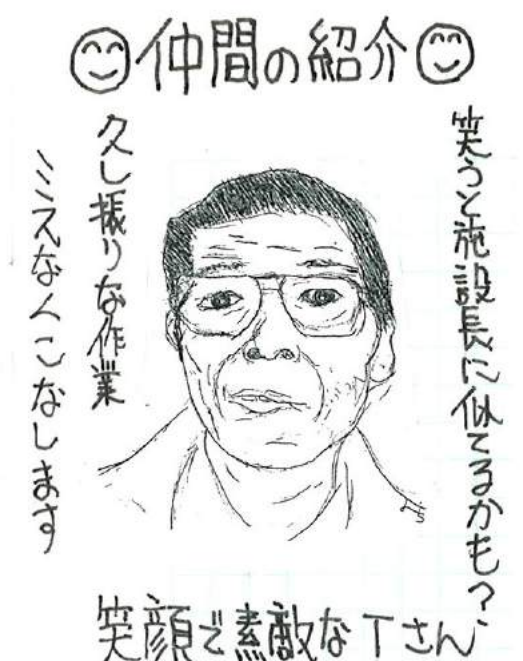 仲間の紹介
笑うと施設長に似てるかも?
久し振りな作業
ミスなくこなします
笑顔で素敵なTさん